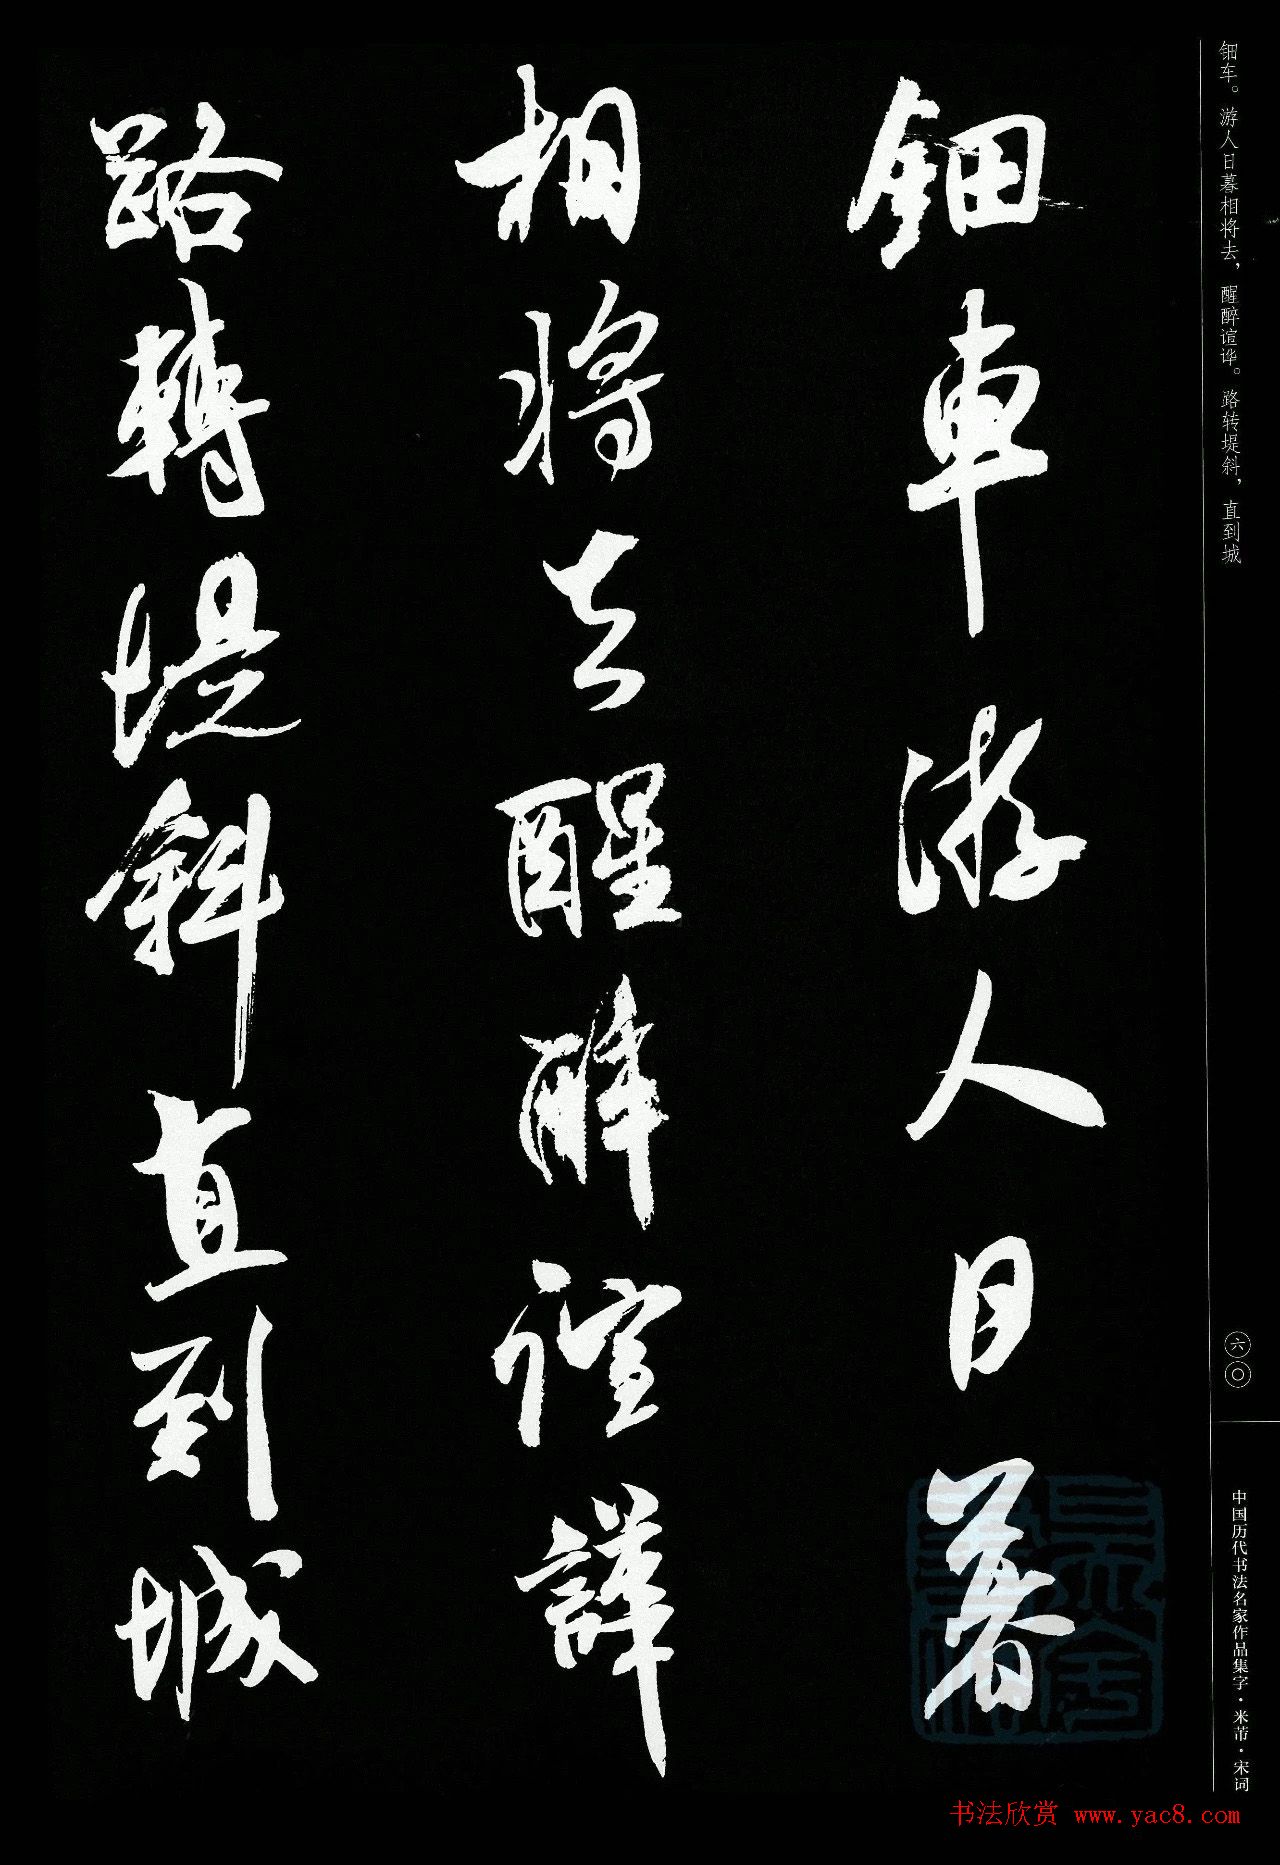 钿车。游人日暮相将去，醒醉谊哗。路转堤斜，直到城
鈿車游人日暮
相將去醒醉諠譁
路轉堤斜直到城
六〇
中国历代书法名家作品集字·米芾·宋词
书法欣赏 www.yac8.com